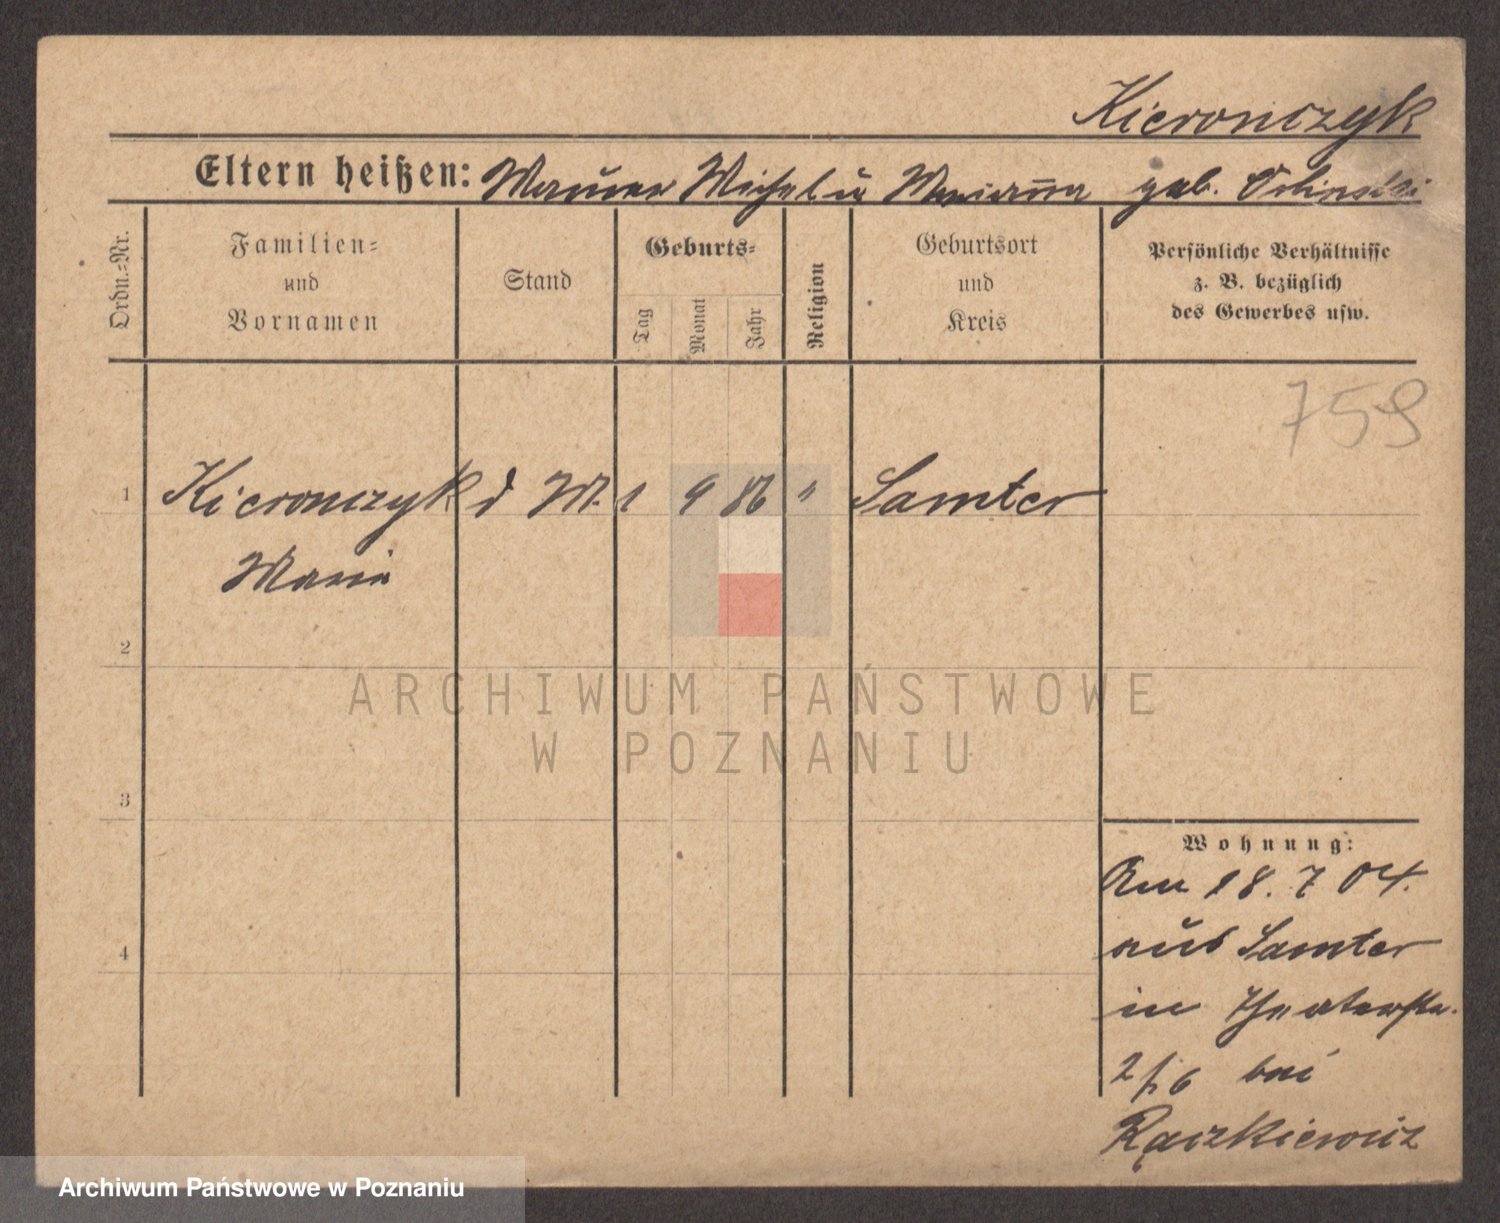 Kieronczyk
Eltern heißen: Maurer Michel u Marianna geb. Orlinski
Ordn.=Nr.
Familien=
und
Vornamen
Stand
Geburts=
Tag
Monat
Jahr
Religion
Geburtsort
und
Kreis
Persönliche Verhältnisse
z. B. bezüglich
des Gewerbes usw.
759
1 Kieronczyk d M. 1 9 86 " Samter
Maria
2
ARCHIWUM PAŃSTWOWE
W POZNANIU
3
Wohnung:
Am 18. 7 04.
4
aus Samter
in Theaterstr.
2/16 bei
Rączkiewicz
Archiwum Państwowe w Poznaniu